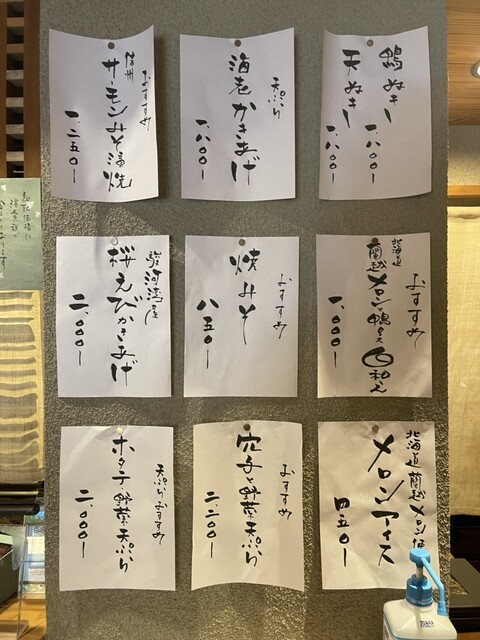 鴨ぬき
一、八〇〇
天ぬき
一、八〇〇
天ぷら
海老かきあげ
一、八〇〇
おすすめ
信州
サーモンみそ漬焼
一、二五〇
おすすめ
北海道
蘭越
メロンと鴨ロース
白和え
一、〇〇〇
おすすめ
焼みそ
八五〇
駿河湾産
桜えびかきあげ
二、〇〇〇
北海道蘭越メロン使
メロンアイス
四五〇
おすすめ
穴子と野菜天ぷら
二、二〇〇
天ぷらおすすめ
ホタテと野菜天ぷら
二、〇〇〇